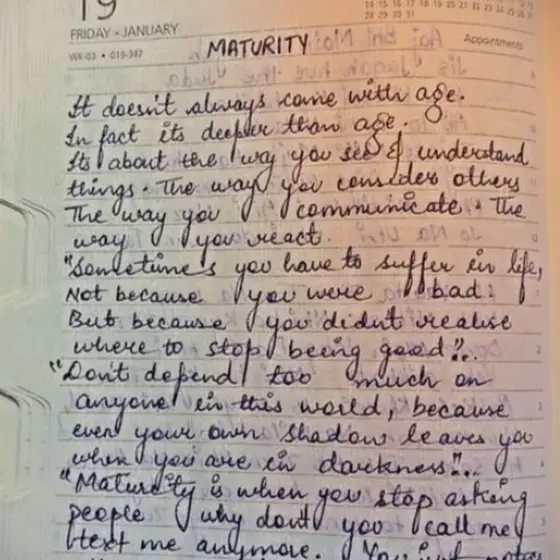 19
FRIDAY • JANUARY
WK-03 • 019-347
Appointments
MATURITY
It doesn't always come with age.
In fact its deeper than age.
Its about the way you see & understand
things. The way you consider others
The way you communicate. The
way you react.
"Sometimes you have to suffer in life,
Not because you were bad.
But because you didn't realise
where to stop being good"..
"Don't depend too much on
anyone in this world, because
even your own shadow leaves you
when you are in darkness"..
"Maturity is when you stop asking
people why don't you call me/
text me anymore. You just